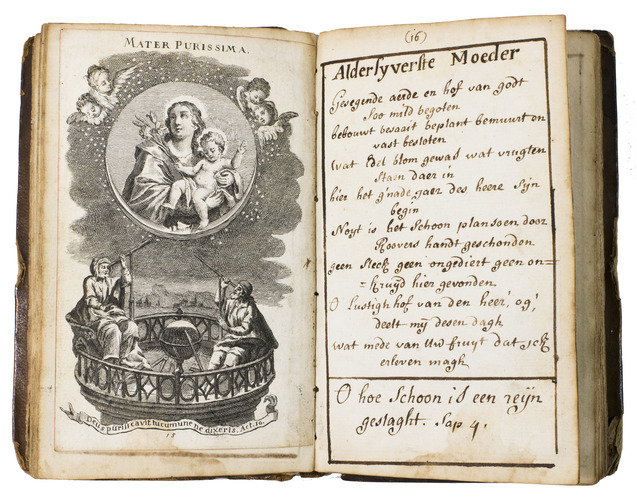 MATER PURISSIMA.
Deus purificavit tu commune ne dixeris. Act. 10.
15
(16)
Aldersyverste Moeder
Gesegende aerde en hof van godt
Soo mild begoten
bebouwt besaait beplant bemuurt en
vast besloten
Wat Edel blom gewas wat vrugten
Staen daer in
hier het g'nade jaer des heere Sijn
begin
Noyt is het Schoon plansoen door
Roovers handt geschonden
geen Sleck geen ongediert geen on=
=kruyd hier gevonden
O Lustigh hof van den heer, og,
deelt mij desen dagh
wat mede van Uw fruyt dat ick
erleven magh
O hoe Schoon is een reijn
geslaght. Sap 4.